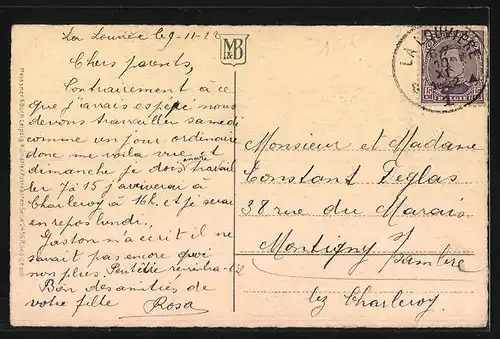 La Louvière le 9-11-22
Chers parents,
Contrairement à ce
que j'avais espéré nous
devons travailler samedi
comme un jour ordinaire
donc me voila
dimanche je dois travail
ler 7 à 15 j'arriverai à
Charleroy à 16h. et je serai
en repos lundi.
Gaston m'a écrit il ne
savait pas encore quoi
non plus. Peut être
Bon des amitiés de
votre fille Rosa
M&B
LA LOUVIÈRE
10
XI
15
BELGIË
Monsieur et Madame
Constant Feglas
38 rue du Marais
Montigny s/
Sambre
lez Charleroy